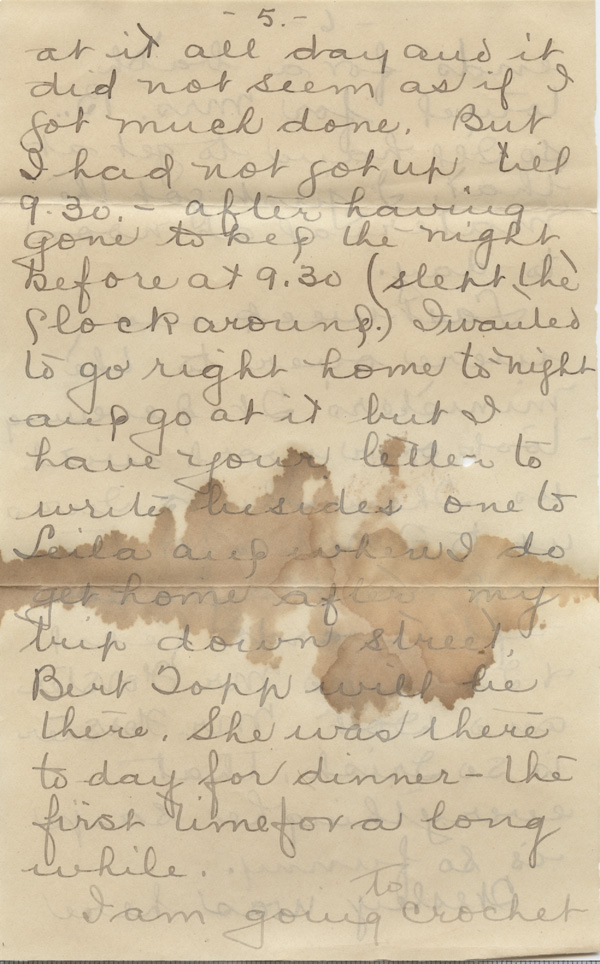 - 5. -
at it all day and it
did not seem as if I
got much done. But
I had not got up till
9.30. - after having
gone to bed the night
before at 9.30 (slept the
clock around.) I wanted
to go right home to night
and go at it but I
have your letter to
write besides one to
Leila and when I do
get home after my
trip down street,
Bert Topp will be
there. She was there
to day for dinner - the
first time for a long
while.
I am going to crochet